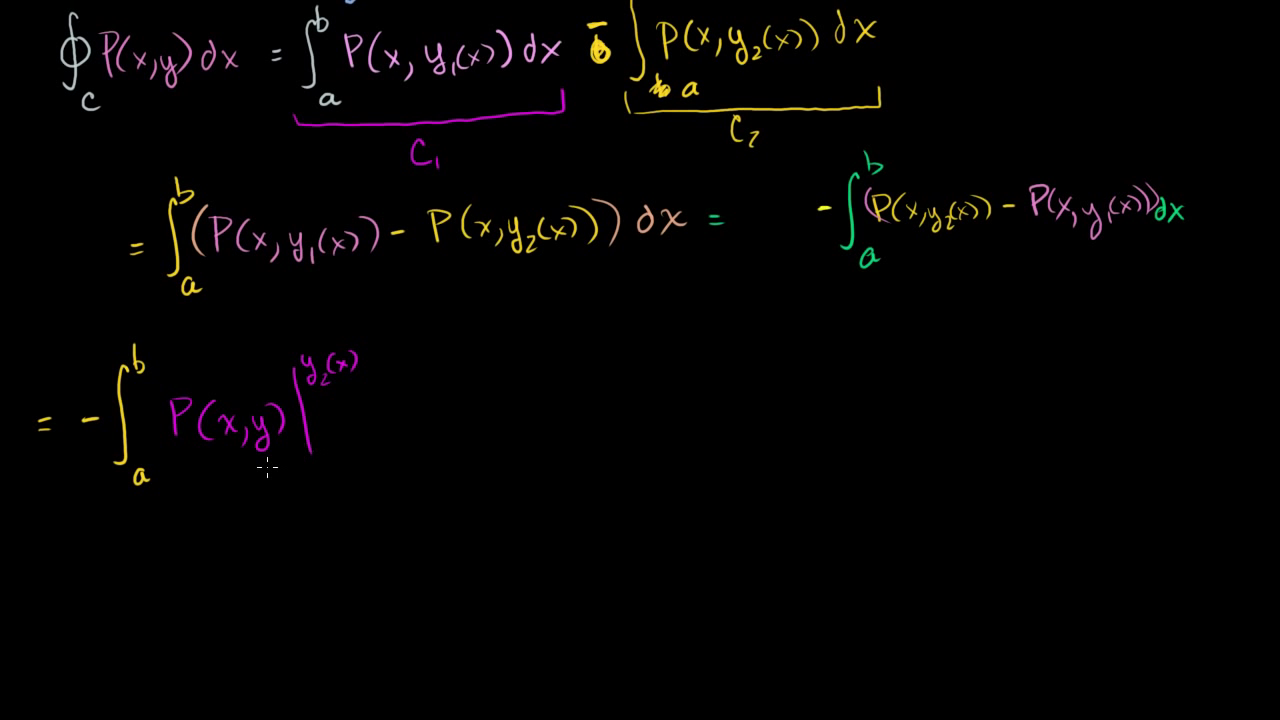 ∮_C P(x,y)dx = ∫_a^b P(x, y₁(x))dx - ∫_a P(x,y₂(x)) dx
C₁ C₂
= ∫_a^b (P(x,y₁(x)) - P(x,y₂(x))) dx = - ∫_a^b (P(x,y₂(x)) - P(x,y₁(x)))dx
= - ∫_a^b P(x,y)|^{y₂(x)}